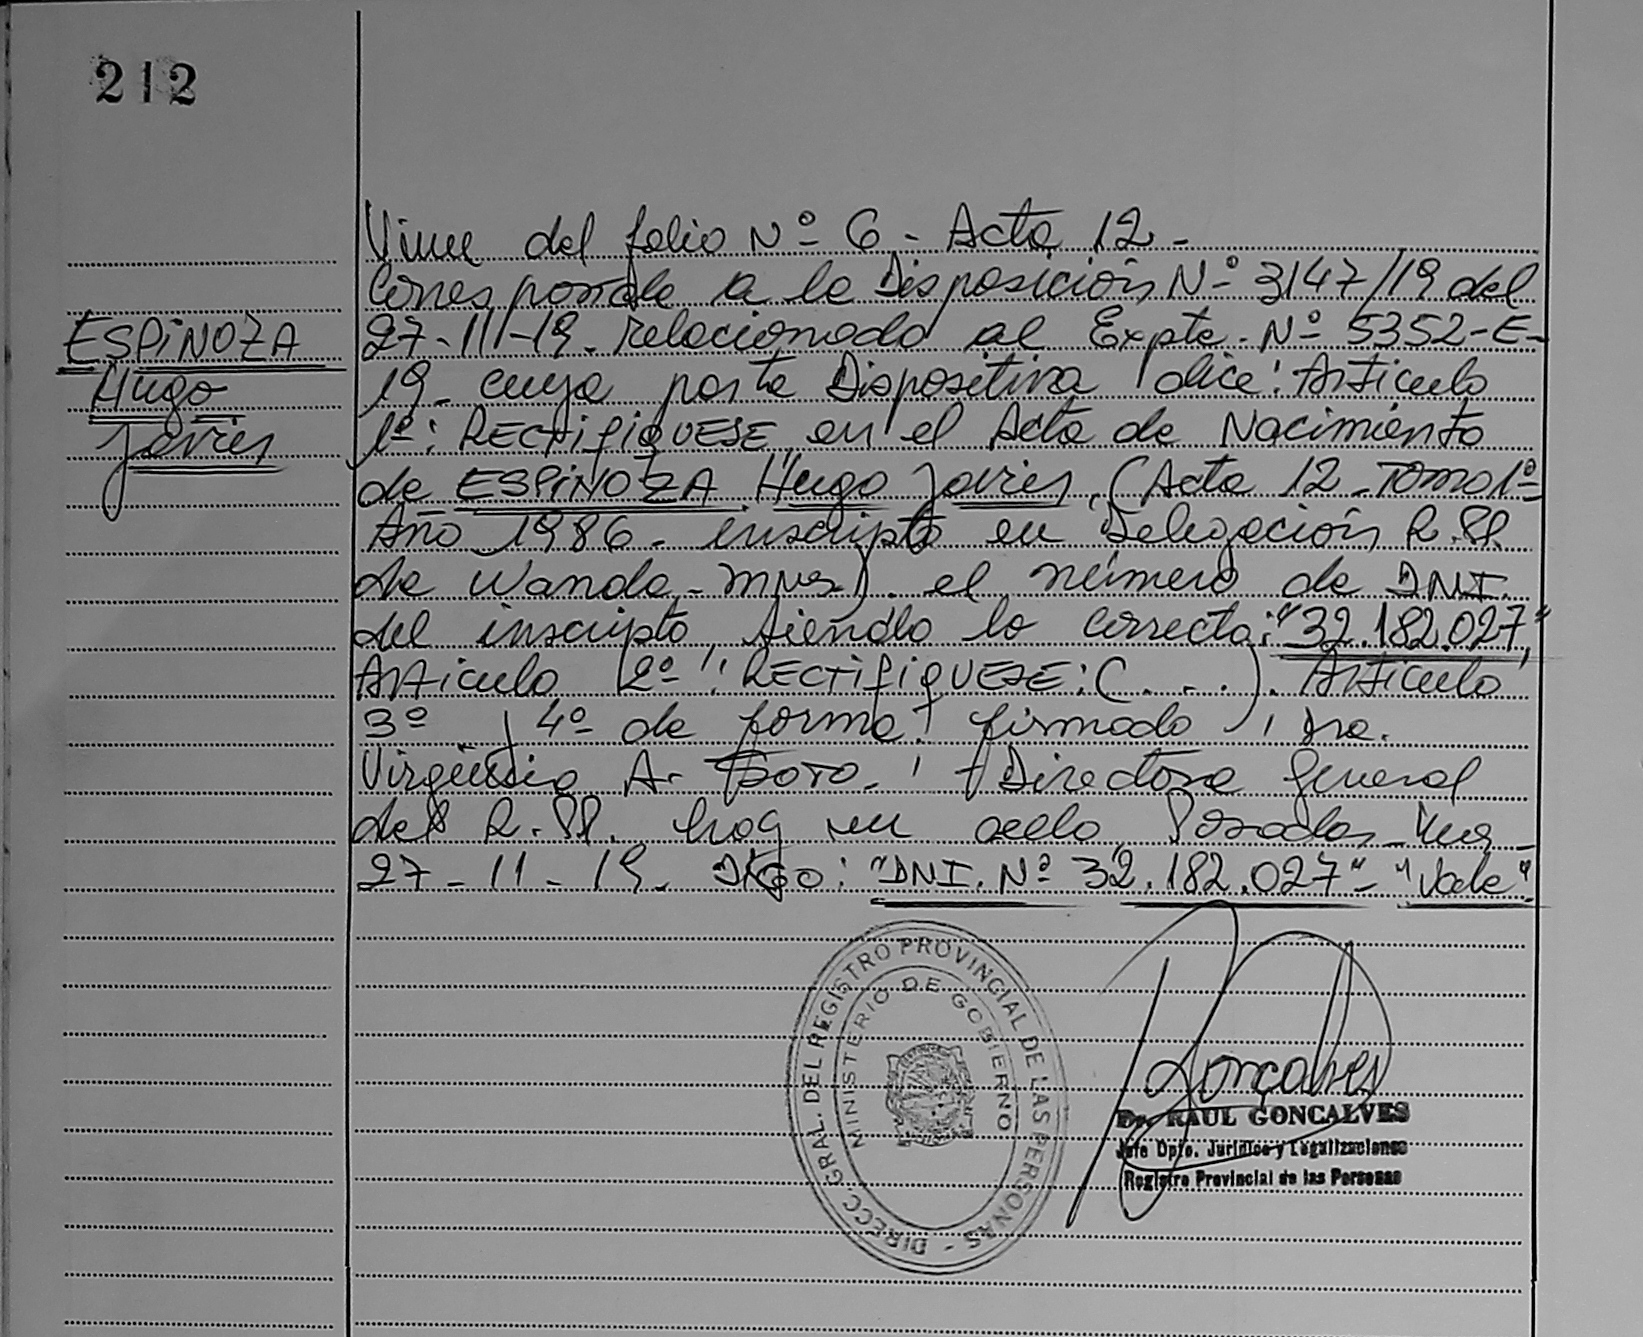 212
Viene del folio Nº 6 - Acta 12 -
Corresponde a la Disposición Nº 3147/19 del
27-11-19. relacionado al Expte. Nº 5352-E-
19. cuya parte Dispositiva dice: Articulo
1º: RECTIFIQUESE en el Acta de Nacimiento
de ESPINOZA Hugo Javier. (Acta 12 - Tomo 1º
Año 1986 - inscripto en Delegación R.PP.
de Wanda - Mnes). el número de DNI.
del inscripto, siendo lo correcto: "32.182.027"
Articulo 2º: RECTIFIQUESE: (...). Articulo
3º y 4º de forma. firmado: Dra.
A. Directora General
del R.PP. hay un sello. Posadas - Mnes -
27 - 11 - 19. "DNI. Nº 32.182.027" - "Vale"
ESPINOZA
Hugo
Javier
DIRECC. GRAL. DEL REGISTRO PROVINCIAL DE LAS PERSONAS -
MINISTERIO DE GOBIERNO
Gonçalves
Dr. RAUL GONCALVES
Jefe Dpto. Jurídico y Legalizaciones
Registro Provincial de las Personas